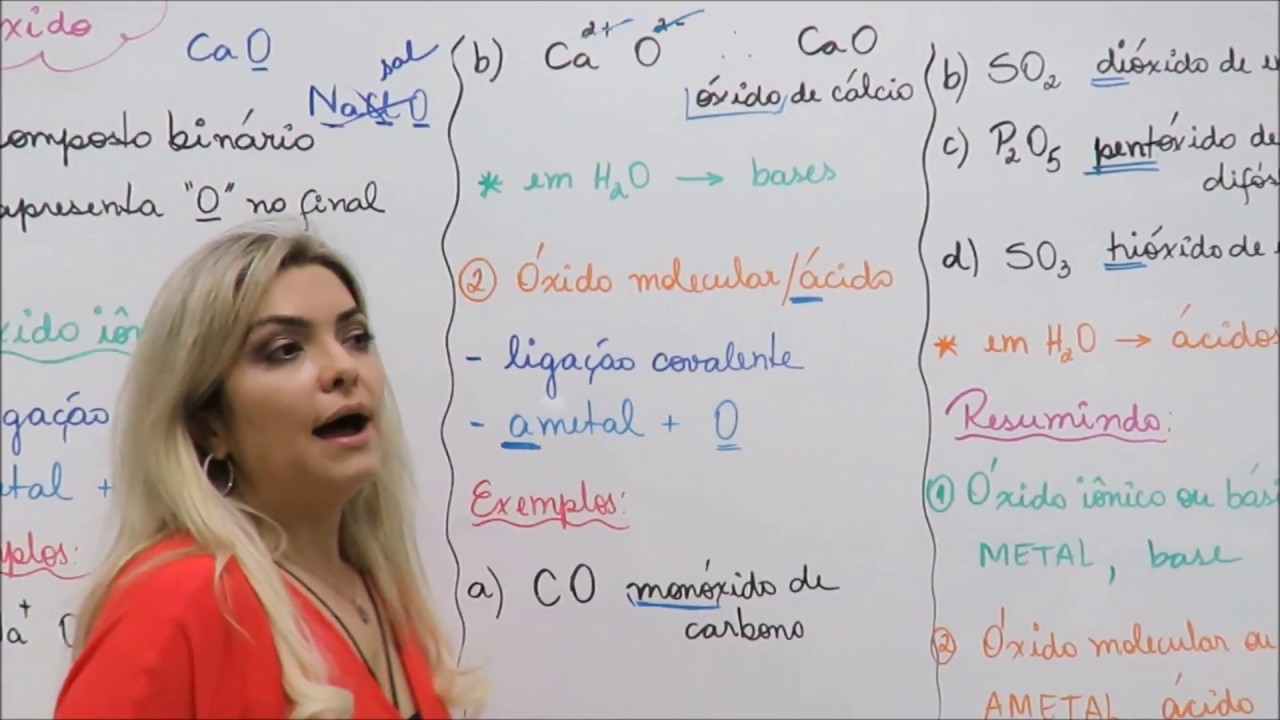 CaO
sal
NaClO
composto binário
apresenta "O" no final
b) Ca²⁺ O²⁻ ∴ CaO
óxido de cálcio
* em H₂O → bases
② Óxido molecular/ácido
- ligação covalente
- ametal + O
Exemplos:
a) CO monóxido de
carbono
b) SO₂ dióxido de
c) P₂O₅ pentóxido de
d) SO₃ trióxido de
* em H₂O → ácidos
Resumindo:
① Óxido iônico ou
METAL, base
② Óxido molecular ou
AMETAL ácido